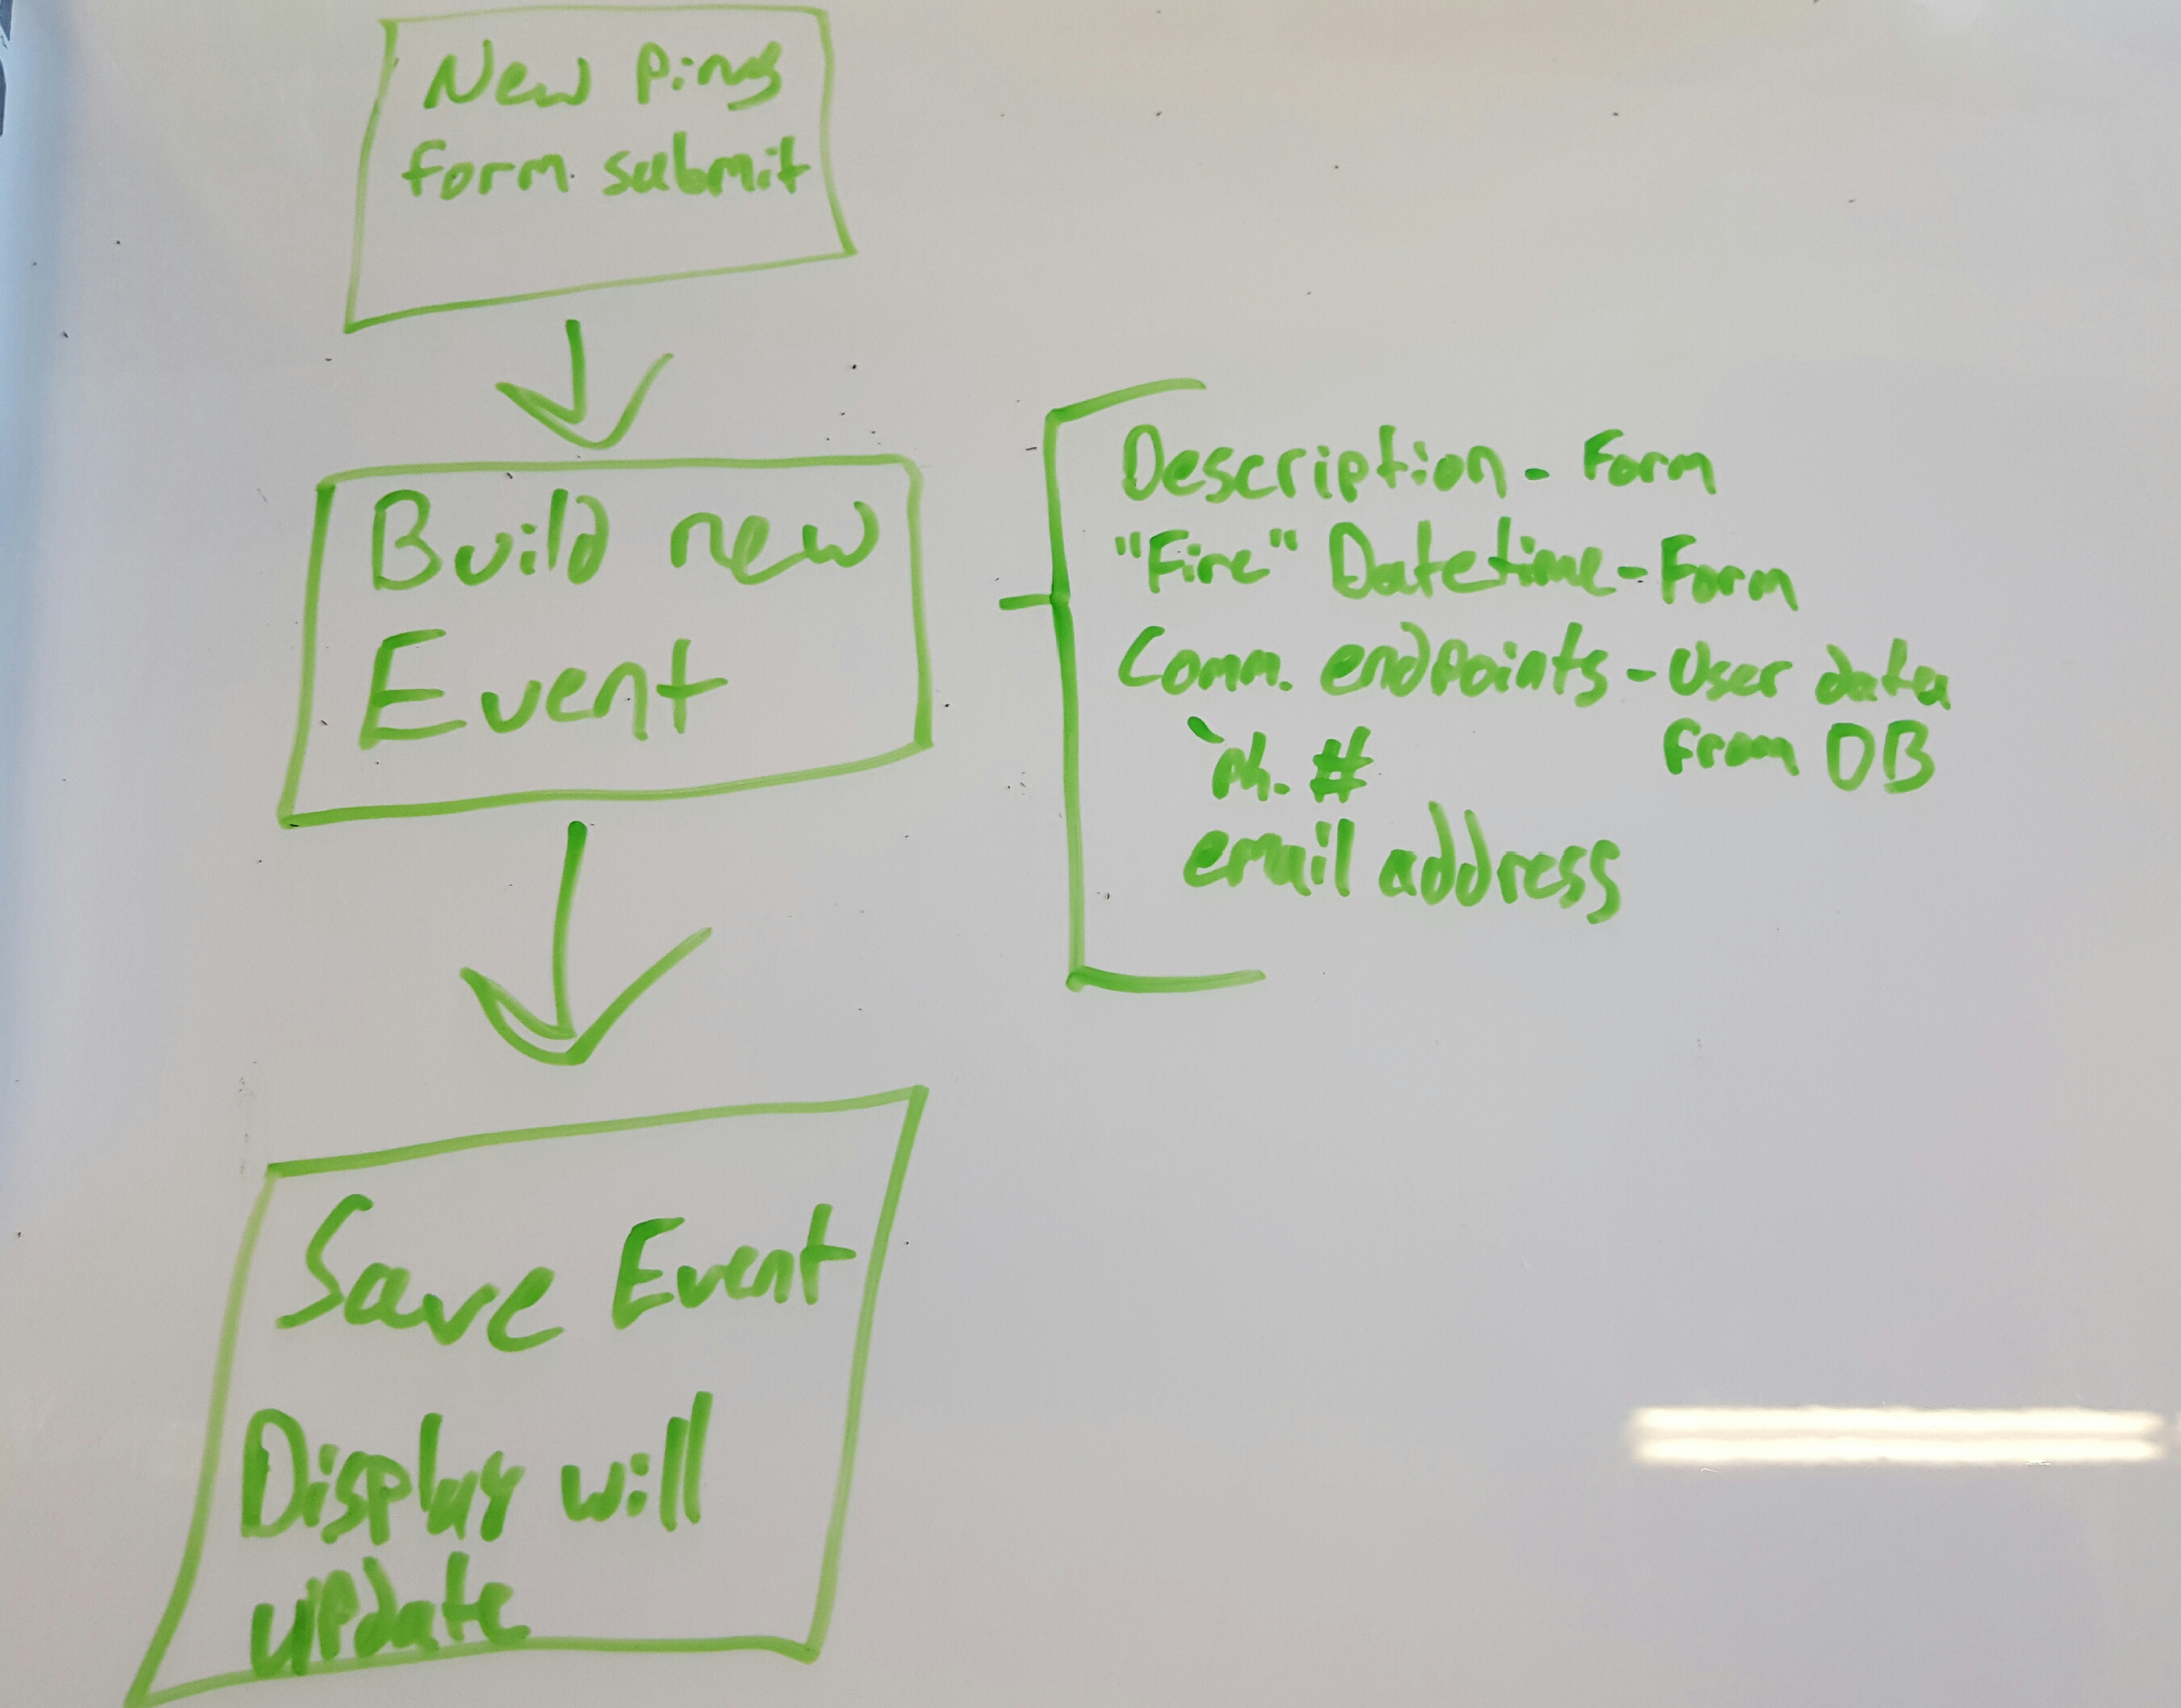 New Ping
form submit
Build new
Event
Description - Form
"Fire" Datetime - Form
Comm. endpoints - User data
from DB
Ph. #
email address
Save Event
Display will
update